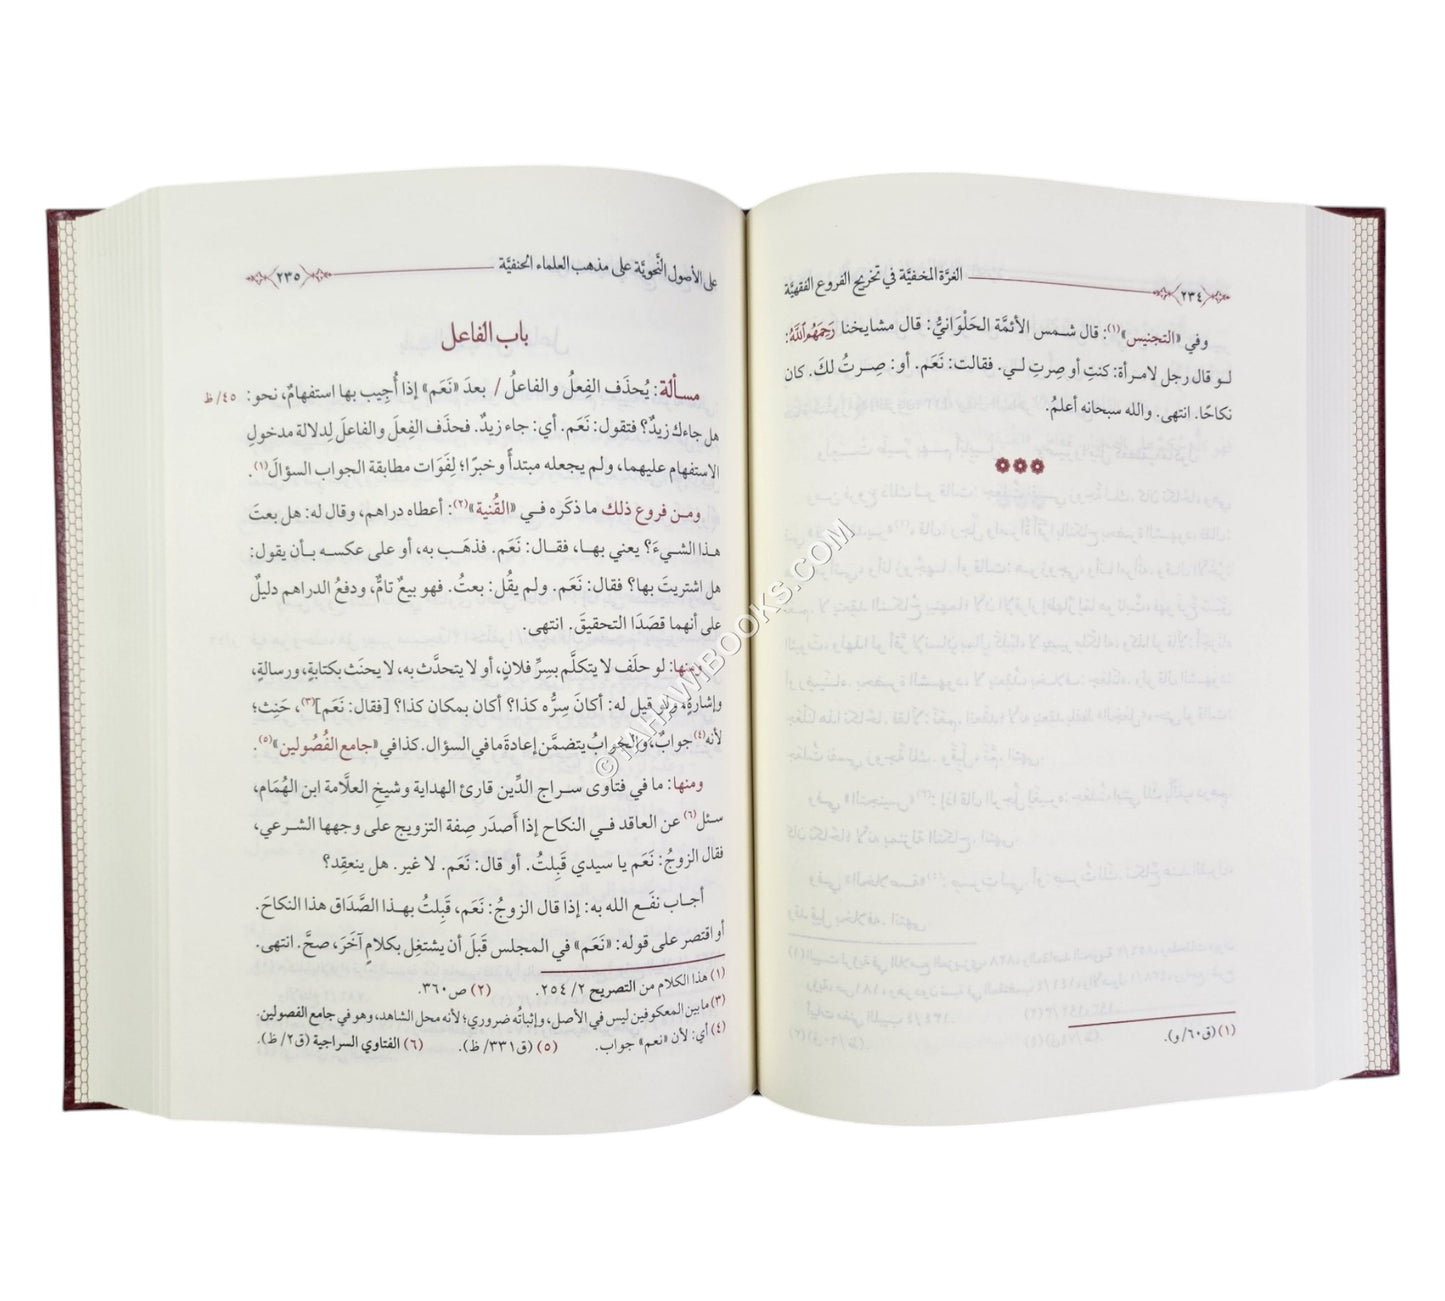 ٢٣٤ الغرَّة المخفيَّة في تخريج الفروع الفقهيَّة
وفي «التجنيس»(١): قال شمس الأئمَّة الحَلْوَانيُّ: قال مشايخنا رَحِمَهُمُ ٱللَّهُ:
لو قال رجل لامرأة: كنتِ أو صِرتِ لي. فقالت: نَعَم. أو: صِرتُ لكَ. كان
نكاحًا. انتهى. والله سبحانه أعلمُ.
(١) (ق٦٠/و).
على الأصول النَّحويَّة على مذهب العلماء الحنفيَّة ٢٣٥
باب الفاعل
مسألة: يُحذَف الفِعلُ والفاعلُ / بعدَ «نَعَم» إذا أُجِيب بها استفهامٌ، نحو: ٤٥/ظ
هل جاءك زيدٌ؟ فتقول: نَعَم. أي: جاء زيدٌ. فحذَف الفِعلَ والفاعلَ لِدلالة مدخولِ
الاستفهام عليهما، ولم يجعله مبتدأً وخبرًا؛ لِفَوَات مطابقة الجواب السؤالَ(١).
ومن فروع ذلك ما ذكَره في «القُنية»(٢): أعطاه دراهم، وقال له: هل بعتَ
هذا الشيءَ؟ يعني بها، فقال: نَعَم. فذهَب به، أو على عكسه بأن يقول:
هل اشتريتَ بها؟ فقال: نَعَم. ولم يقُل: بعتُ. فهو بيعٌ تامٌّ، ودفعُ الدراهم دليلٌ
على أنهما قصَدَا التحقيقَ. انتهى.
ومنها: لو حلَف لا يتكلَّم بسِرِّ فلانٍ، أو لا يتحدَّث به، لا يحنَث بكتابةٍ، ورسالةٍ،
وإشارةٍ، ولو قيل له: أكانَ سِرُّه كذا؟ أكان بمكان كذا؟ [فقال: نَعَم](٣)، حَنِث؛
لأنه(٤) جوابٌ، والجوابُ يتضمَّن إعادةَ ما في السؤال. كذا في «جامع الفُصُولين»(٥).
ومنها: ما في فتاوى سراج الدِّين قارئ الهداية وشيخِ العلَّامة ابن الهُمَام،
سئل(٦) عن العاقد في النكاح إذا أصدَر صِفة التزويج على وجهها الشرعي،
فقال الزوجُ: نَعَم يا سيدي قَبِلتُ. أو قال: نَعَم. لا غير. هل ينعقِد؟
أجاب نفَع الله به: إذا قال الزوجُ: نَعَم، قَبِلتُ بهذا الصَّدَاق هذا النكاحَ.
أو اقتصر على قوله: «نَعَم» في المجلس قَبلَ أن يشتغِل بكلامٍ آخَرَ، صحَّ. انتهى.
(١) هذا الكلام من التصريح ٢/ ٢٥٤. (٢) ص٣٦٠.
(٣) ما بين المعكوفين ليس في الأصل، وإثباتُه ضروري؛ لأنه محل الشاهد، وهو في جامع الفصولين.
(٤) أي: لأن «نعم» جواب. (٥) (ق٣٣١/ ظ). (٦) الفتاوي السراجية (ق٢/ ظ).
©TAHAWIBOOKS.COM